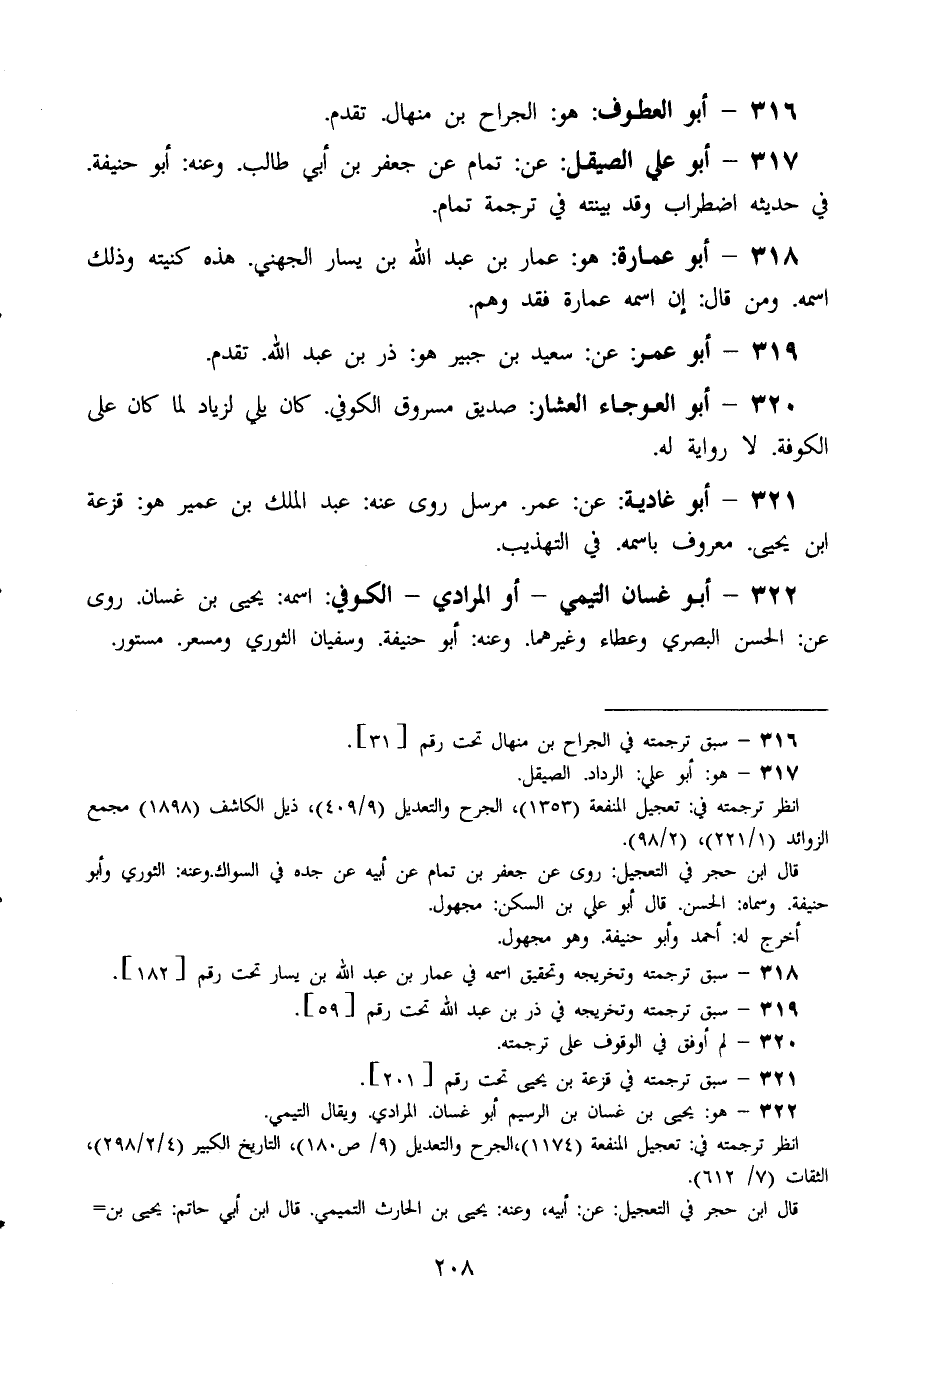 ٣١٦ – أبو العطوف: هو: الجراح بن منهال. تقدم.
٣١٧ – أبو علي الصيقل: عن: تمام عن جعفر بن أبي طالب. وعنه: أبو حنيفة.
في حديثه اضطراب وقد بينته في ترجمة تمام.
٣١٨ – أبو عمارة: هو: عمار بن عبد الله بن يسار الجهني. هذه كنيته وذلك
اسمه. ومن قال: إن اسمه عمارة فقد وهم.
٣١٩ – أبو عمر: عن: سعيد بن جبير هو: ذر بن عبد الله. تقدم.
٣٢٠ – أبو العوجاء العشار: صديق مسروق الكوفي. كان يلي لزياد لما كان على
الكوفة. لا رواية له.
٣٢١ – أبو غادية: عن: عمر. مرسل روى عنه: عبد الملك بن عمير هو: قزعة
ابن يحيى. معروف باسمه. في التهذيب.
٣٢٢ – أبو غسان التيمي – أو المرادي – الكوفي: اسمه: يحيى بن غسان. روى
عن: الحسن البصري وعطاء وغيرهما. وعنه: أبو حنيفة. وسفيان الثوري ومسعر. مستور.
٣١٦ – سبق ترجمته في الجراح بن منهال تحت رقم [٣١].
٣١٧ – هو: أبو علي: الرداد. الصيقل.
انظر ترجمته في: تعجيل المنفعة (١٣٥٣)، الجرح والتعديل (٤٠٩/٩)، ذيل الكاشف (١٨٩٨) مجمع
الزوائد (٢٢١/١)، (٩٨/٢).
قال ابن حجر في التعجيل: روى عن جعفر بن تمام عن أبيه عن جده في السواك.وعنه: الثوري وأبو
حنيفة. وسماه: الحسن. قال أبو علي بن السكن: مجهول.
أخرج له: أحمد وأبو حنيفة. وهو مجهول.
٣١٨ – سبق ترجمته وتخريجه وتحقيق اسمه في عمار بن عبد الله بن يسار تحت رقم [١٨٢].
٣١٩ – سبق ترجمته وتخريجه في ذر بن عبد الله تحت رقم [٥٩].
٣٢٠ – لم أوفق في الوقوف على ترجمته.
٣٢١ – سبق ترجمته في قزعة بن يحيى تحت رقم [٢٠١].
٣٢٢ – هو: يحيى بن غسان بن الرسيم أبو غسان. المرادي. ويقال التيمي.
انظر ترجمته في: تعجيل المنفعة (١١٧٤)،الجرح والتعديل (٩/ ص١٨٠)، التاريخ الكبير (٢٩٨/٢/٤)،
الثقات (٧/ ٦١٢).
قال ابن حجر في التعجيل: عن: أبيه، وعنه: يحيى بن الحارث التميمي. قال ابن أبي حاتم: يحيى بن=
٢٠٨